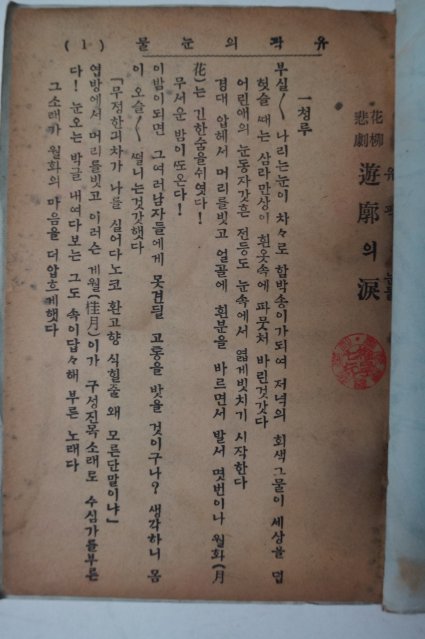 유곽의눈물 (1)
花柳悲劇 遊廓의 淚
一 청루
부실〱 나리는눈이 차々로 합박송이가되여 저녁의 회색그물이 세상을 덥
헛슬 때는 삼라만상이 흰옷속에 파뭇처 바린것갓다
어린애의 눈동자갓흔 전등도 눈속에서 엷게빗치기 시작한다
경대 압헤서 머리를빗고 얼골에 흰분을 바르면서 발서 몃번이나 월화(月
花)는 긴한숨을쉬엿다!
무서운 밤이또온다!
이밤이되면 그여러남자들에게 못견딀 고통을 밧을 것이구나? 생각하니 몸
이 오슬〱 떨니는것갓햇다
「무정한긔차가 나를 실어다노코 환고향 식힐줄 왜 모른단말이냐」
엽방에서 머리를빗고 이러슨 계월(桂月)이가 구성진목소래로 수심가를부른
다! 눈오는 박글 내여다보는 그도 속이답々해 부른 노래다
그소래가 월화의 마음을 더압흐게햇다